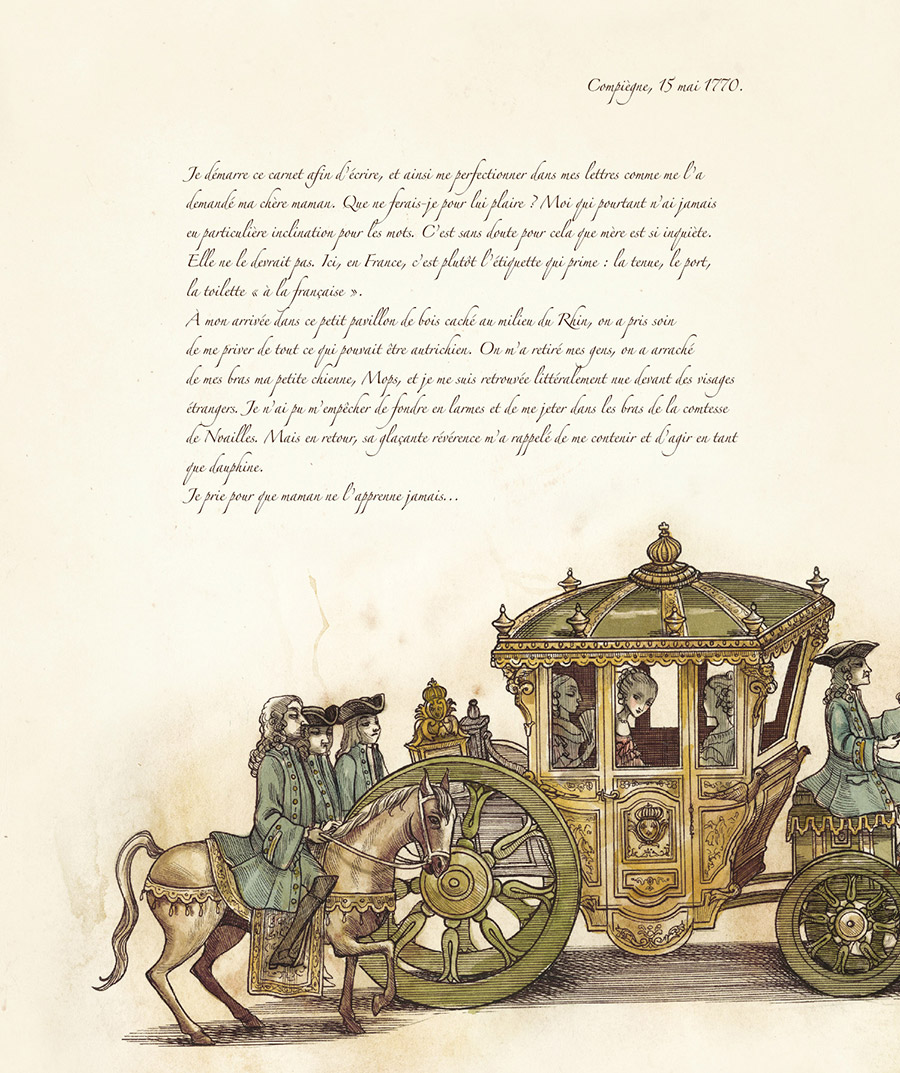 Compiègne, 15 mai 1770.
Je démarre ce carnet afin d'écrire, et ainsi me perfectionner dans mes lettres comme me l'a
demandé ma chère maman. Que ne ferais-je pour lui plaire ? Moi qui pourtant n'ai jamais
eu particulière inclination pour les mots. C'est sans doute pour cela que mère est si inquiète.
Elle ne le devrait pas. Ici, en France, c'est plutôt l'étiquette qui prime : la tenue, le port,
la toilette « à la française ».
À mon arrivée dans ce petit pavillon de bois caché au milieu du Rhin, on a pris soin
de me priver de tout ce qui pouvait être autrichien. On m'a retiré mes gens, on a arraché
de mes bras ma petite chienne, Mops, et je me suis retrouvée littéralement nue devant des visages
étrangers. Je n'ai pu m'empêcher de fondre en larmes et de me jeter dans les bras de la comtesse
de Noailles. Mais en retour, sa glaçante révérence m'a rappelé de me contenir et d'agir en tant
que dauphine.
Je prie pour que maman ne l'apprenne jamais…